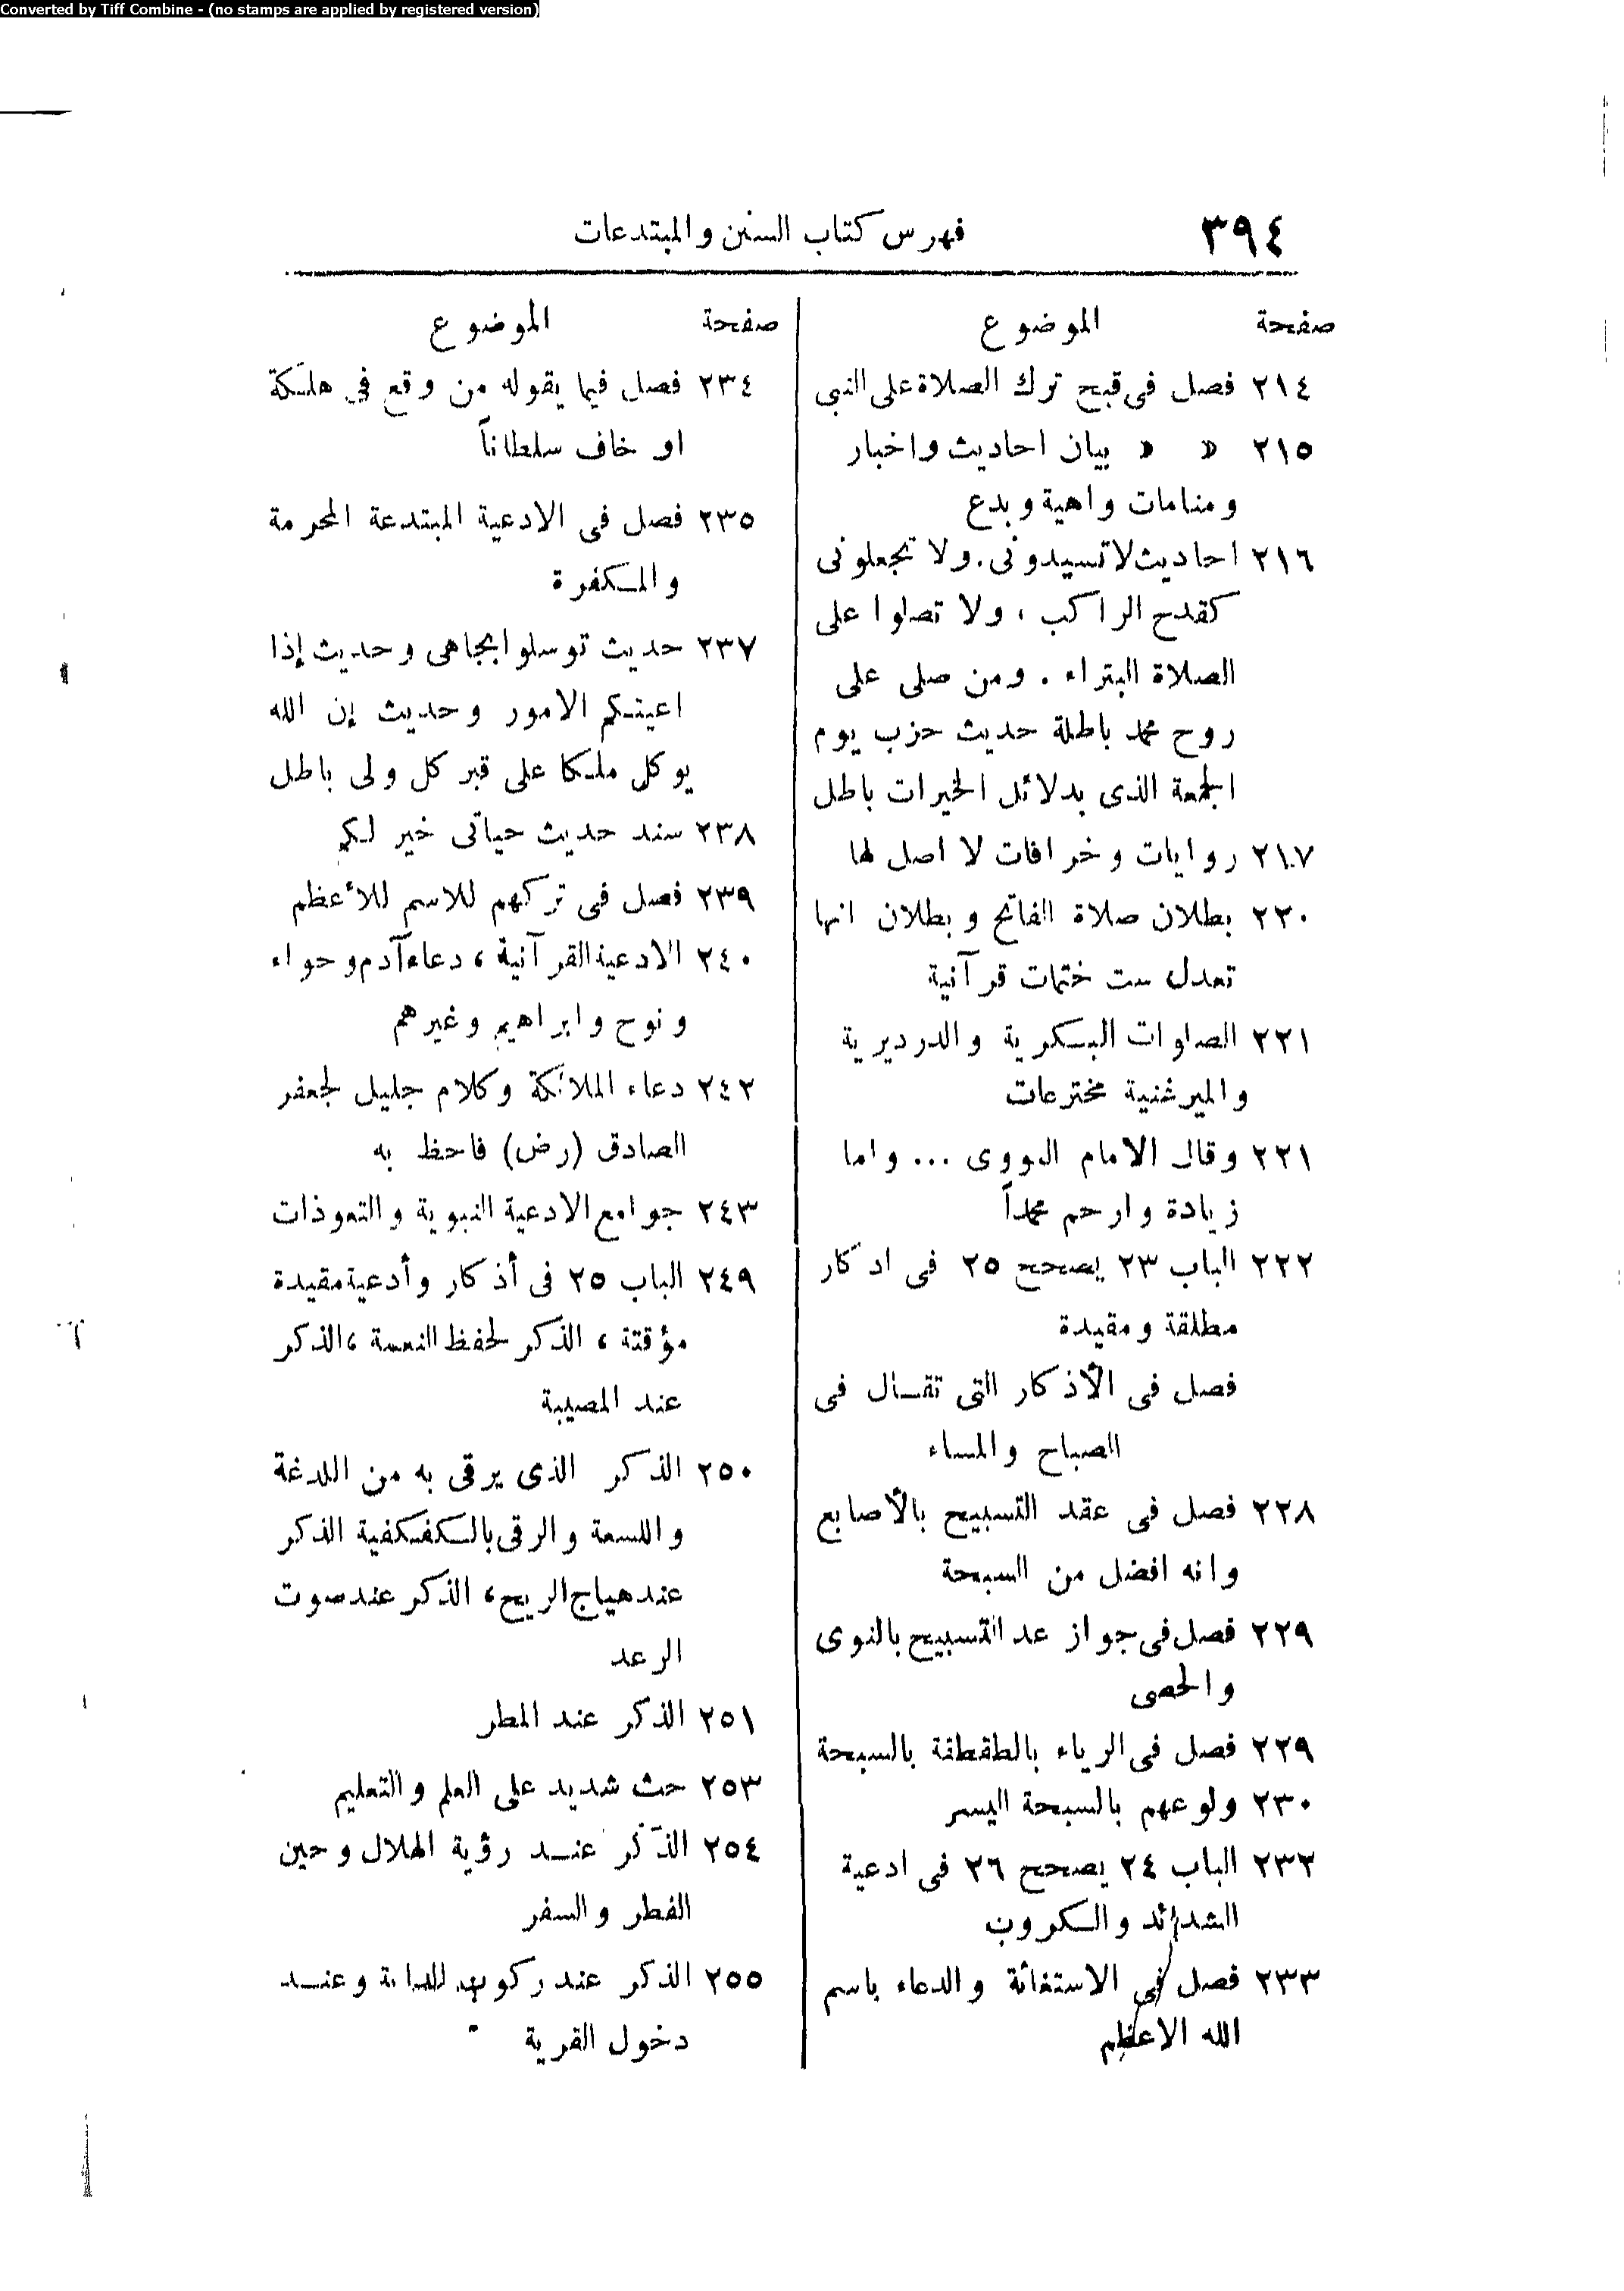 Converted by Tiff Combine - (no stamps are applied by registered version)
٣٩٤ فهرس كتاب السنن والمبتدعات
صفحة الموضوع
٢١٤ فصل فى قبح ترك الصلاة على النبى
٢١٥ » » بيان احاديث واخبار
ومنامات واهية وبدع
٢١٦ احاديث لا تسيدونى . ولا تجعلونى
كقدح الراكب ، ولا تصلوا على
الصلاة البتراء . ومن صلى على
روح محمد باطلة حديث حزب يوم
الجمعة الذى بدلائل الخيرات باطل
٢١٧ روايات وخرافات لا اصل لها
٢٢٠ بطلان صلاة الفاتح وبطلان انها
تعدل ست ختمات قرآنية
٢٢١ الصلوات البكرية والدرديرية
والميرغنية مخترعات
٢٢١ وقال الامام النووى ... واما
زيادة وارحم محمداً
٢٢٢ الباب ٢٣ يصحح ٢٥ فى اذكار
مطلقة ومقيدة
فصل فى الأذكار التى تقال فى
الصباح والمساء
٢٢٨ فصل فى عقد التسبيح بالأصابع
وانه افضل من السبحة
٢٢٩ فصل فى جواز عد التسبيح بالنوى
والحصى
٢٢٩ فصل فى الرياء بالطقطقة بالسبحة
٢٣٠ ولوعهم بالسبحة اليسر
٢٣٢ الباب ٢٤ يصحح ٢٦ فى ادعية
الشدائد والكروب
٢٣٣ فصل فى الاستغاثة والدعاء باسم
الله الاعظم
صفحة الموضوع
٢٣٤ فصل فيما يقوله من وقع فى هلكة
او خاف سلطاناً
٢٣٥ فصل فى الادعية المبتدعة المحرمة
والمكفرة
٢٣٧ حديث توسلوا بجاهى وحديث إذا
اعيتكم الامور وحديث إن الله
يوكل ملكا على قبر كل ولى باطل
٢٣٨ سند حديث حياتى خير لكم
٢٣٩ فصل فى تركهم للاسم للأعظم
٢٤٠ الادعية القرآنية ، دعاء آدم وحواء
ونوح وابراهيم وغيرهم
٢٤٢ دعاء الملائكة وكلام جليل لجعفر
الصادق (رض) فاحظ به
٢٤٣ جوامع الادعية النبوية والتعوذات
٢٤٩ الباب ٢٥ فى أذكار وأدعية مقيدة
مؤقتة ، الذكر لحفظ النعمة ، الذكر
عند المصيبة
٢٥٠ الذكر الذى يرقى به من اللدغة
واللسعة والرقى بالكفكفية الذكر
عند هياج الريح ، الذكر عند صوت
الرعد
٢٥١ الذكر عند المطر
٢٥٣ حث شديد على العلم والتعليم
٢٥٤ الذكر عند رؤية الهلال وحين
الفطر والسفر
٢٥٥ الذكر عند ركوب الدابة وعند
دخول القرية